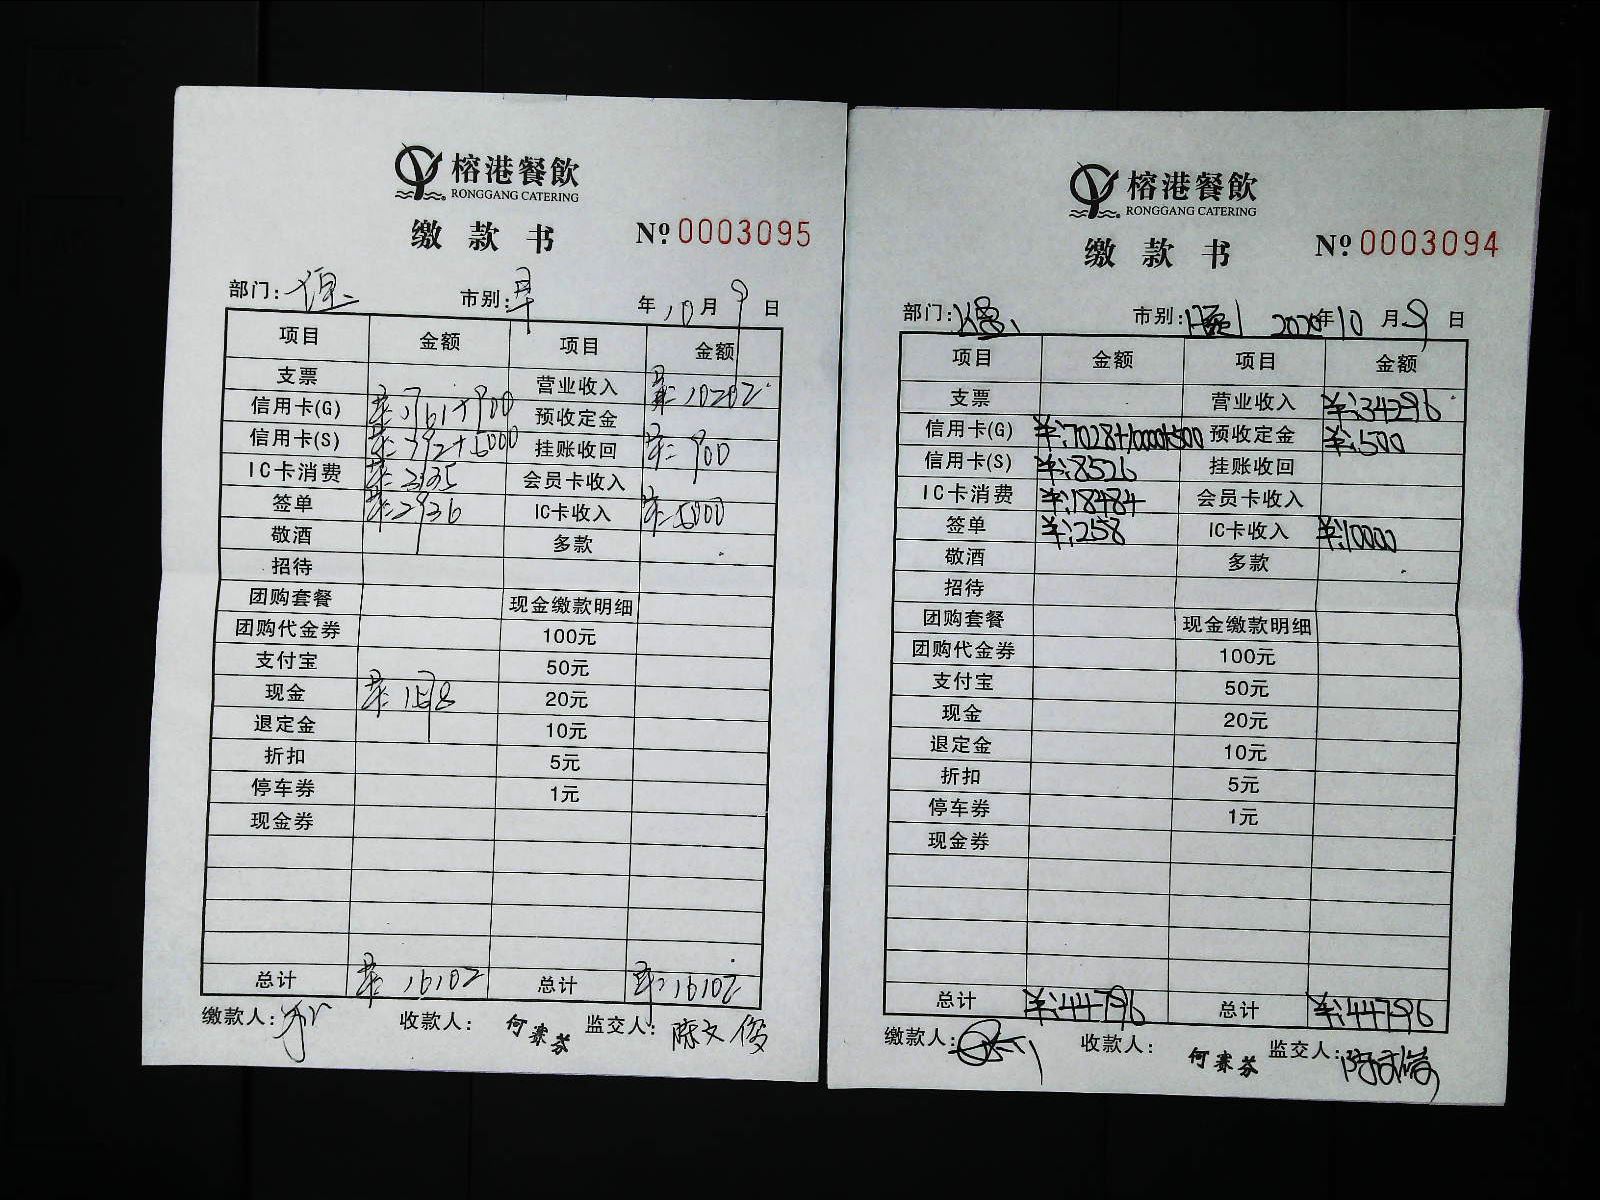 榕港餐飲
RONGGANG CATERING
缴款书 № 0003095
部门: 市别:早 年10月9日
项目 金额 项目 金额
支票 营业收入 ¥:10202
信用卡(G) 预收定金
信用卡(S) ¥:392+5000 挂账收回 ¥:900
IC卡消费 会员卡收入
签单 ¥:2936 IC卡收入 ¥:5000
敬酒 多款
招待
团购套餐 现金缴款明细
团购代金券 100元
支付宝 50元
现金 20元
退定金 10元
折扣 5元
停车券 1元
现金券
总计 ¥:16102 总计 ¥:16102
缴款人: 收款人:何赛芬 监交人:陈文俊
榕港餐飲
RONGGANG CATERING
缴款书 № 0003094
部门: 市别: 2020年10月9日
项目 金额 项目 金额
支票 营业收入 ¥:34296
信用卡(G) ¥:7028+10000+500 预收定金 ¥:500
信用卡(S) ¥:8526 挂账收回
IC卡消费 ¥:18484 会员卡收入
签单 ¥:258 IC卡收入 ¥:10000
敬酒 多款
招待
团购套餐 现金缴款明细
团购代金券 100元
支付宝 50元
现金 20元
退定金 10元
折扣 5元
停车券 1元
现金券
总计 ¥:44796 总计 ¥:44796
缴款人: 收款人:何赛芬 监交人:陈文俊